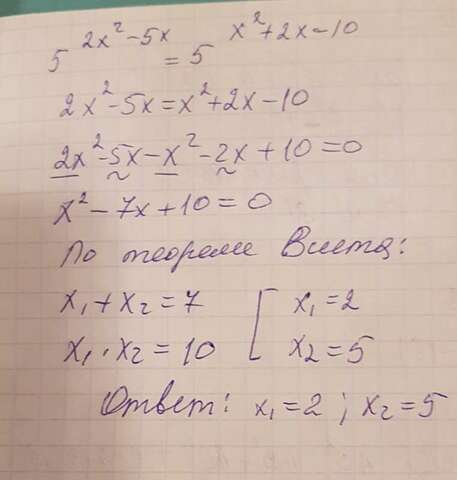 5^(2x²-5x) = 5^(x²+2x-10)
2x²-5x=x²+2x-10
2x²-5x-x²-2x+10=0
x²-7x+10=0
По теореме Виета:
x₁+x₂=7 [ x₁=2
x₁·x₂=10 x₂=5
Ответ: x₁=2; x₂=5